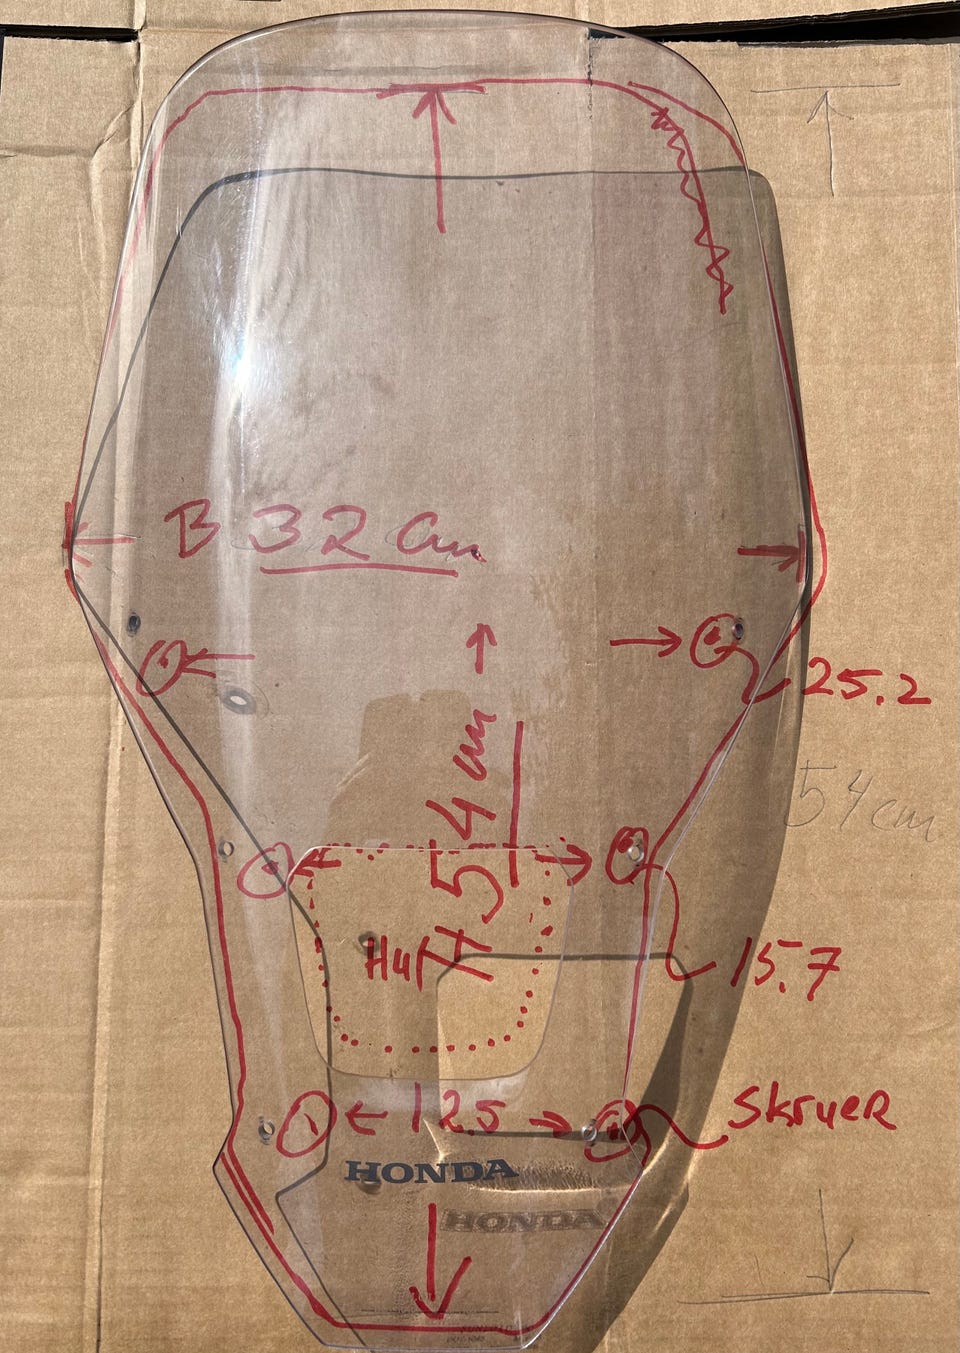 B 32 cm
25.2
H 54 cm
54 cm
Hul
15.7
12.5
Skruer
HONDA
HONDA